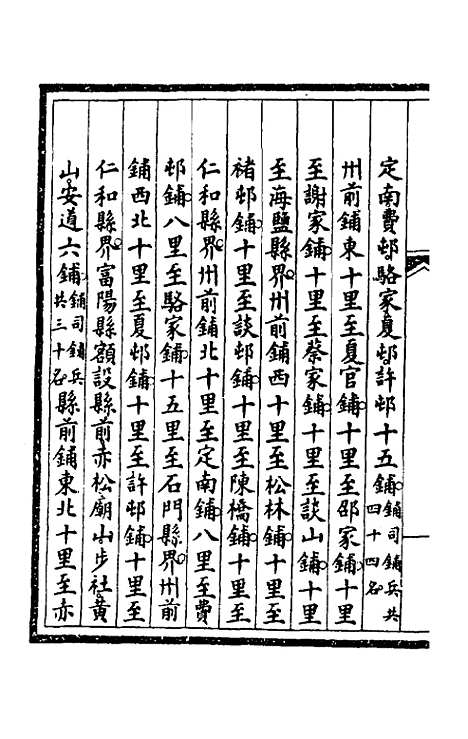 定南費邨駱家夏邨許邨十五鋪鋪司鋪兵共四十四名
州前鋪東十里至夏官鋪十里至邵家鋪十里
至謝家鋪十里至蔡家鋪十里至談山鋪十里
至海鹽縣界州前鋪西十里至松林鋪十里至
禇邨鋪十里至談邨鋪十里至陳橋鋪十里至
仁和縣界州前鋪北十里至定南鋪八里至費
邨鋪八里至駱家鋪十五里至石門縣界州前
鋪西北十里至夏邨鋪十里至許邨鋪十里至
仁和縣界富陽縣額設縣前赤松廟山步社黃
山安道六鋪鋪司鋪兵共三十名縣前鋪東北十里至赤